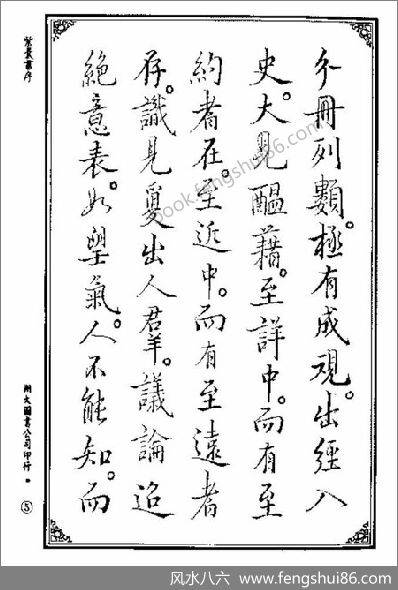 分冊列數。極有成規。出經入
史。大見醞藉。至詳中。而有至
約者在。至近中。而有至遠者
存。識見夐出人羣。議論迢
絕意表。如望氣。人不能知。而
紫囊書序
大圖書公司印行
⑤
book.fengshui86.com
风水八六 www.fengshui86.com